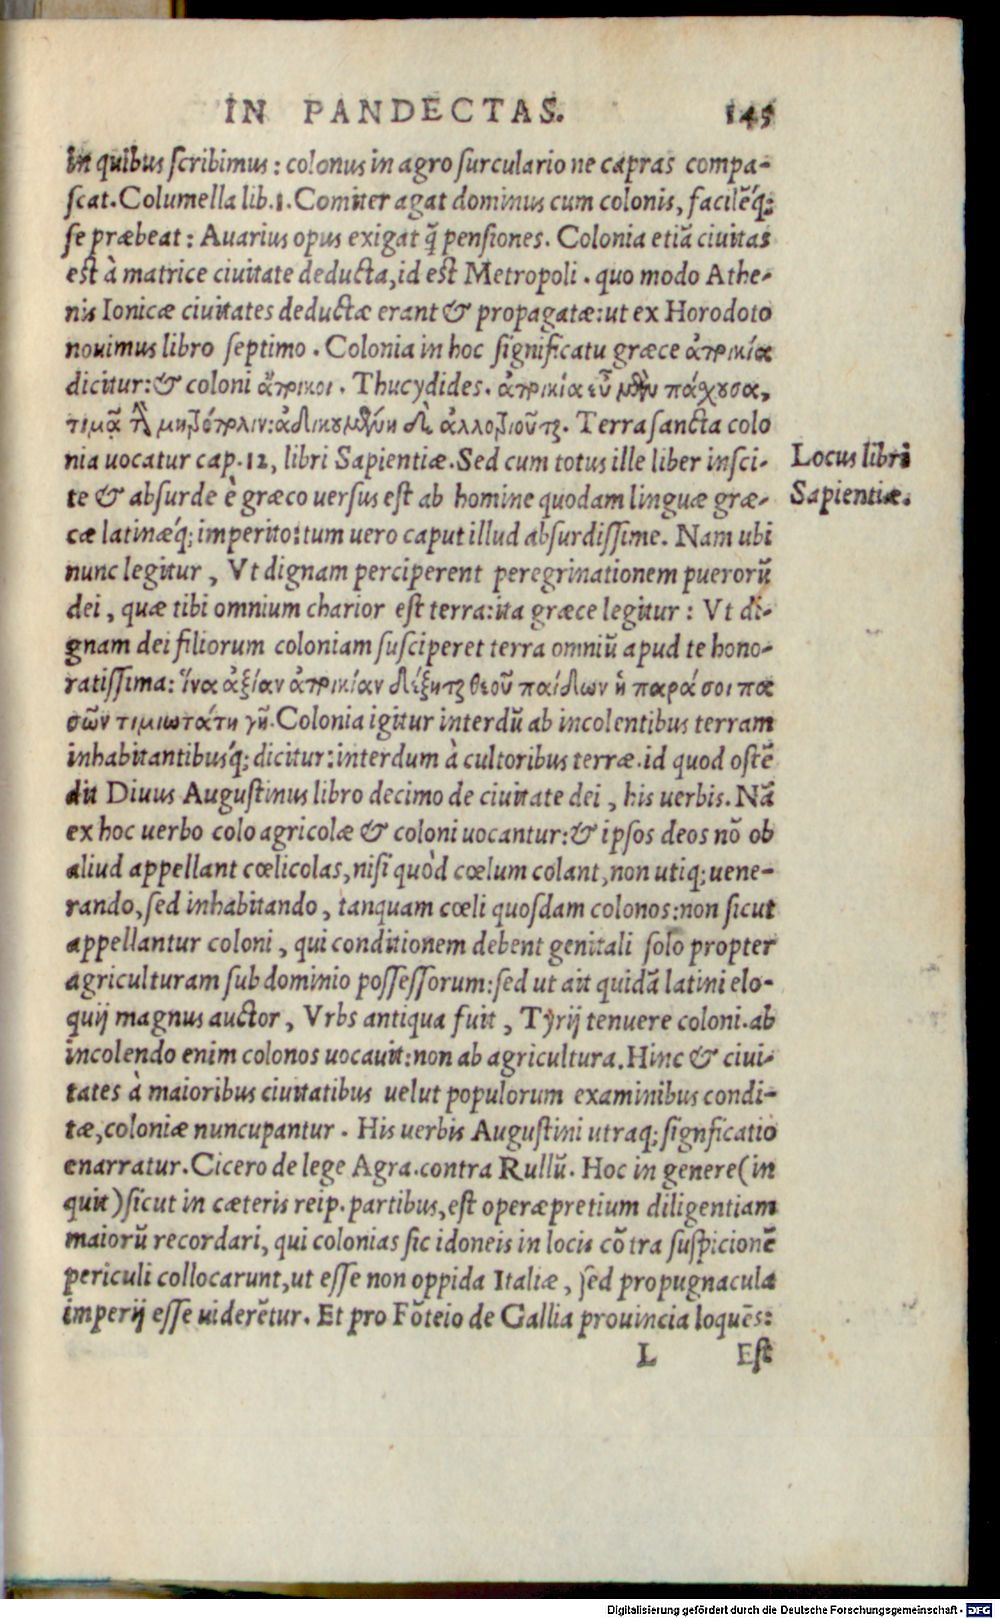 IN PANDECTAS. 145
In quibus scribimus: colonus in agro surculario ne capras compa-
scat. Columella lib. 1. Comiter agat dominus cum colonis, facilẽq́;
se præbeat: Auarius opus exigat q̃ pensiones. Colonia etiã ciuitas
est à matrice ciuitate deducta, id est Metropoli. quo modo Athe-
nis Ionicæ ciuitates deductæ erant & propagatæ: ut ex Horodoto
nouimus libro septimo. Colonia in hoc significatu græce ἀποικία
dicitur: & coloni ἄποικοι. Thucydides. ἀποικία εὖ μὲν πάχουσα,
τιμᾷ τὴν μητρόπολιν: ἀδικουμένη δὲ ἀλλοτριοῦται. Terra sancta colo
nia uocatur cap. 12, libri Sapientiæ. Sed cum totus ille liber insci-
Locus libri
te & absurde è græco uersus est ab homine quodam linguæ græ-
Sapientiæ.
cæ latinæq́; imperito: tum uero caput illud absurdissime. Nam ubi
nunc legitur, Vt dignam perciperent peregrinationem puerorũ
dei, quæ tibi omnium charior est terra: ita græce legitur: Vt di-
gnam dei filiorum coloniam susciperet terra omniũ apud te hono-
ratissima: ἵνα ἀξίαν ἀποικίαν δέξηται θεοῦ παίδων ἡ παρά σοι πα
σῶν τιμιωτάτη γῆ. Colonia igitur interdũ ab incolentibus terram
inhabitantibusq́; dicitur: interdum à cultoribus terræ. id quod ostẽ
dit Diuus Augustinus libro decimo de ciuitate dei, his uerbis. Nã
ex hoc uerbo colo agricolæ & coloni uocantur: & ipsos deos nõ ob
aliud appellant cœlicolas, nisi quòd cœlum colant, non utiq; uene-
rando, sed inhabitando, tanquam cœli quosdam colonos: non sicut
appellantur coloni, qui conditionem debent genitali solo propter
agriculturam sub dominio possessorum: sed ut ait quidã latini elo-
quij magnus auctor, Vrbs antiqua fuit, Tyrij tenuere coloni. ab
incolendo enim colonos uocauit: non ab agricultura. Hinc & ciui-
tates à maioribus ciuitatibus uelut populorum examinibus condi-
tæ, coloniæ nuncupantur. His uerbis Augustini utraq; signficatio
enarratur. Cicero de lege Agra. contra Rullũ. Hoc in genere (in
quit) sicut in cæteris reip. partibus, est operæpretium diligentiam
maiorũ recordari, qui colonias sic idoneis in locis cõtra suspicionẽ
periculi collocarunt, ut esse non oppida Italiæ, sed propugnacula
imperij esse uiderẽtur. Et pro Fõteio de Gallia prouincia loquẽs:
L Est
Digitalisierung gefördert durch die Deutsche Forschungsgemeinschaft - DFG